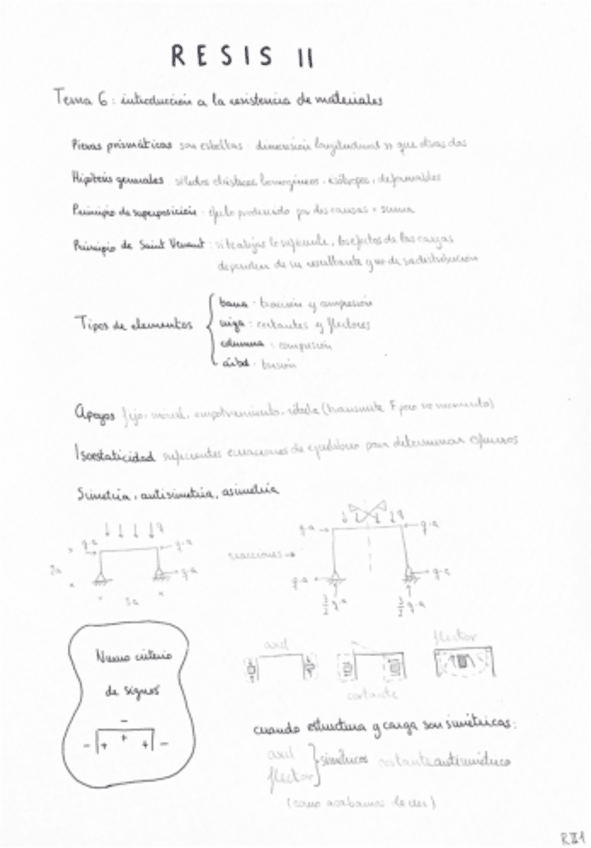 RESIS II
Tema 6: introducción a la resistencia de materiales
Piezas prismáticas son esbeltas · dimensión longitudinal >> que otras dos
Hipótesis generales: sólidos elásticos homogéneos, isótropos, deformables
Principio de superposición: efecto producido por dos causas = suma
Principio de Saint Venant: si trabajas lo suficiente, los efectos de las cargas
dependen de su resultante y no de su distribución
Tipos de elementos
barra · tracción y compresión
viga: cortantes y flectores
columna: compresión
árbol · torsión
Apoyos fijo, móvil, empotramiento, rótula (transmite F pero no momento)
Isoestaticidad suficientes ecuaciones de equilibrio para determinar esfuerzos
Simetría, antisimetría, asimetría
q
q·a
q·a
q·a
2a
3a
reacciones →
q
q·a
q·a
q·a
q·a
3/2 q·a
3/2 q·a
Nuevo criterio
de signos
−
− + + + −
axil
flector
cortante
cuando estructura y carga son simétricas:
axil
flector
} simétricos cortante antisimétrico
(como acabamos de ver)